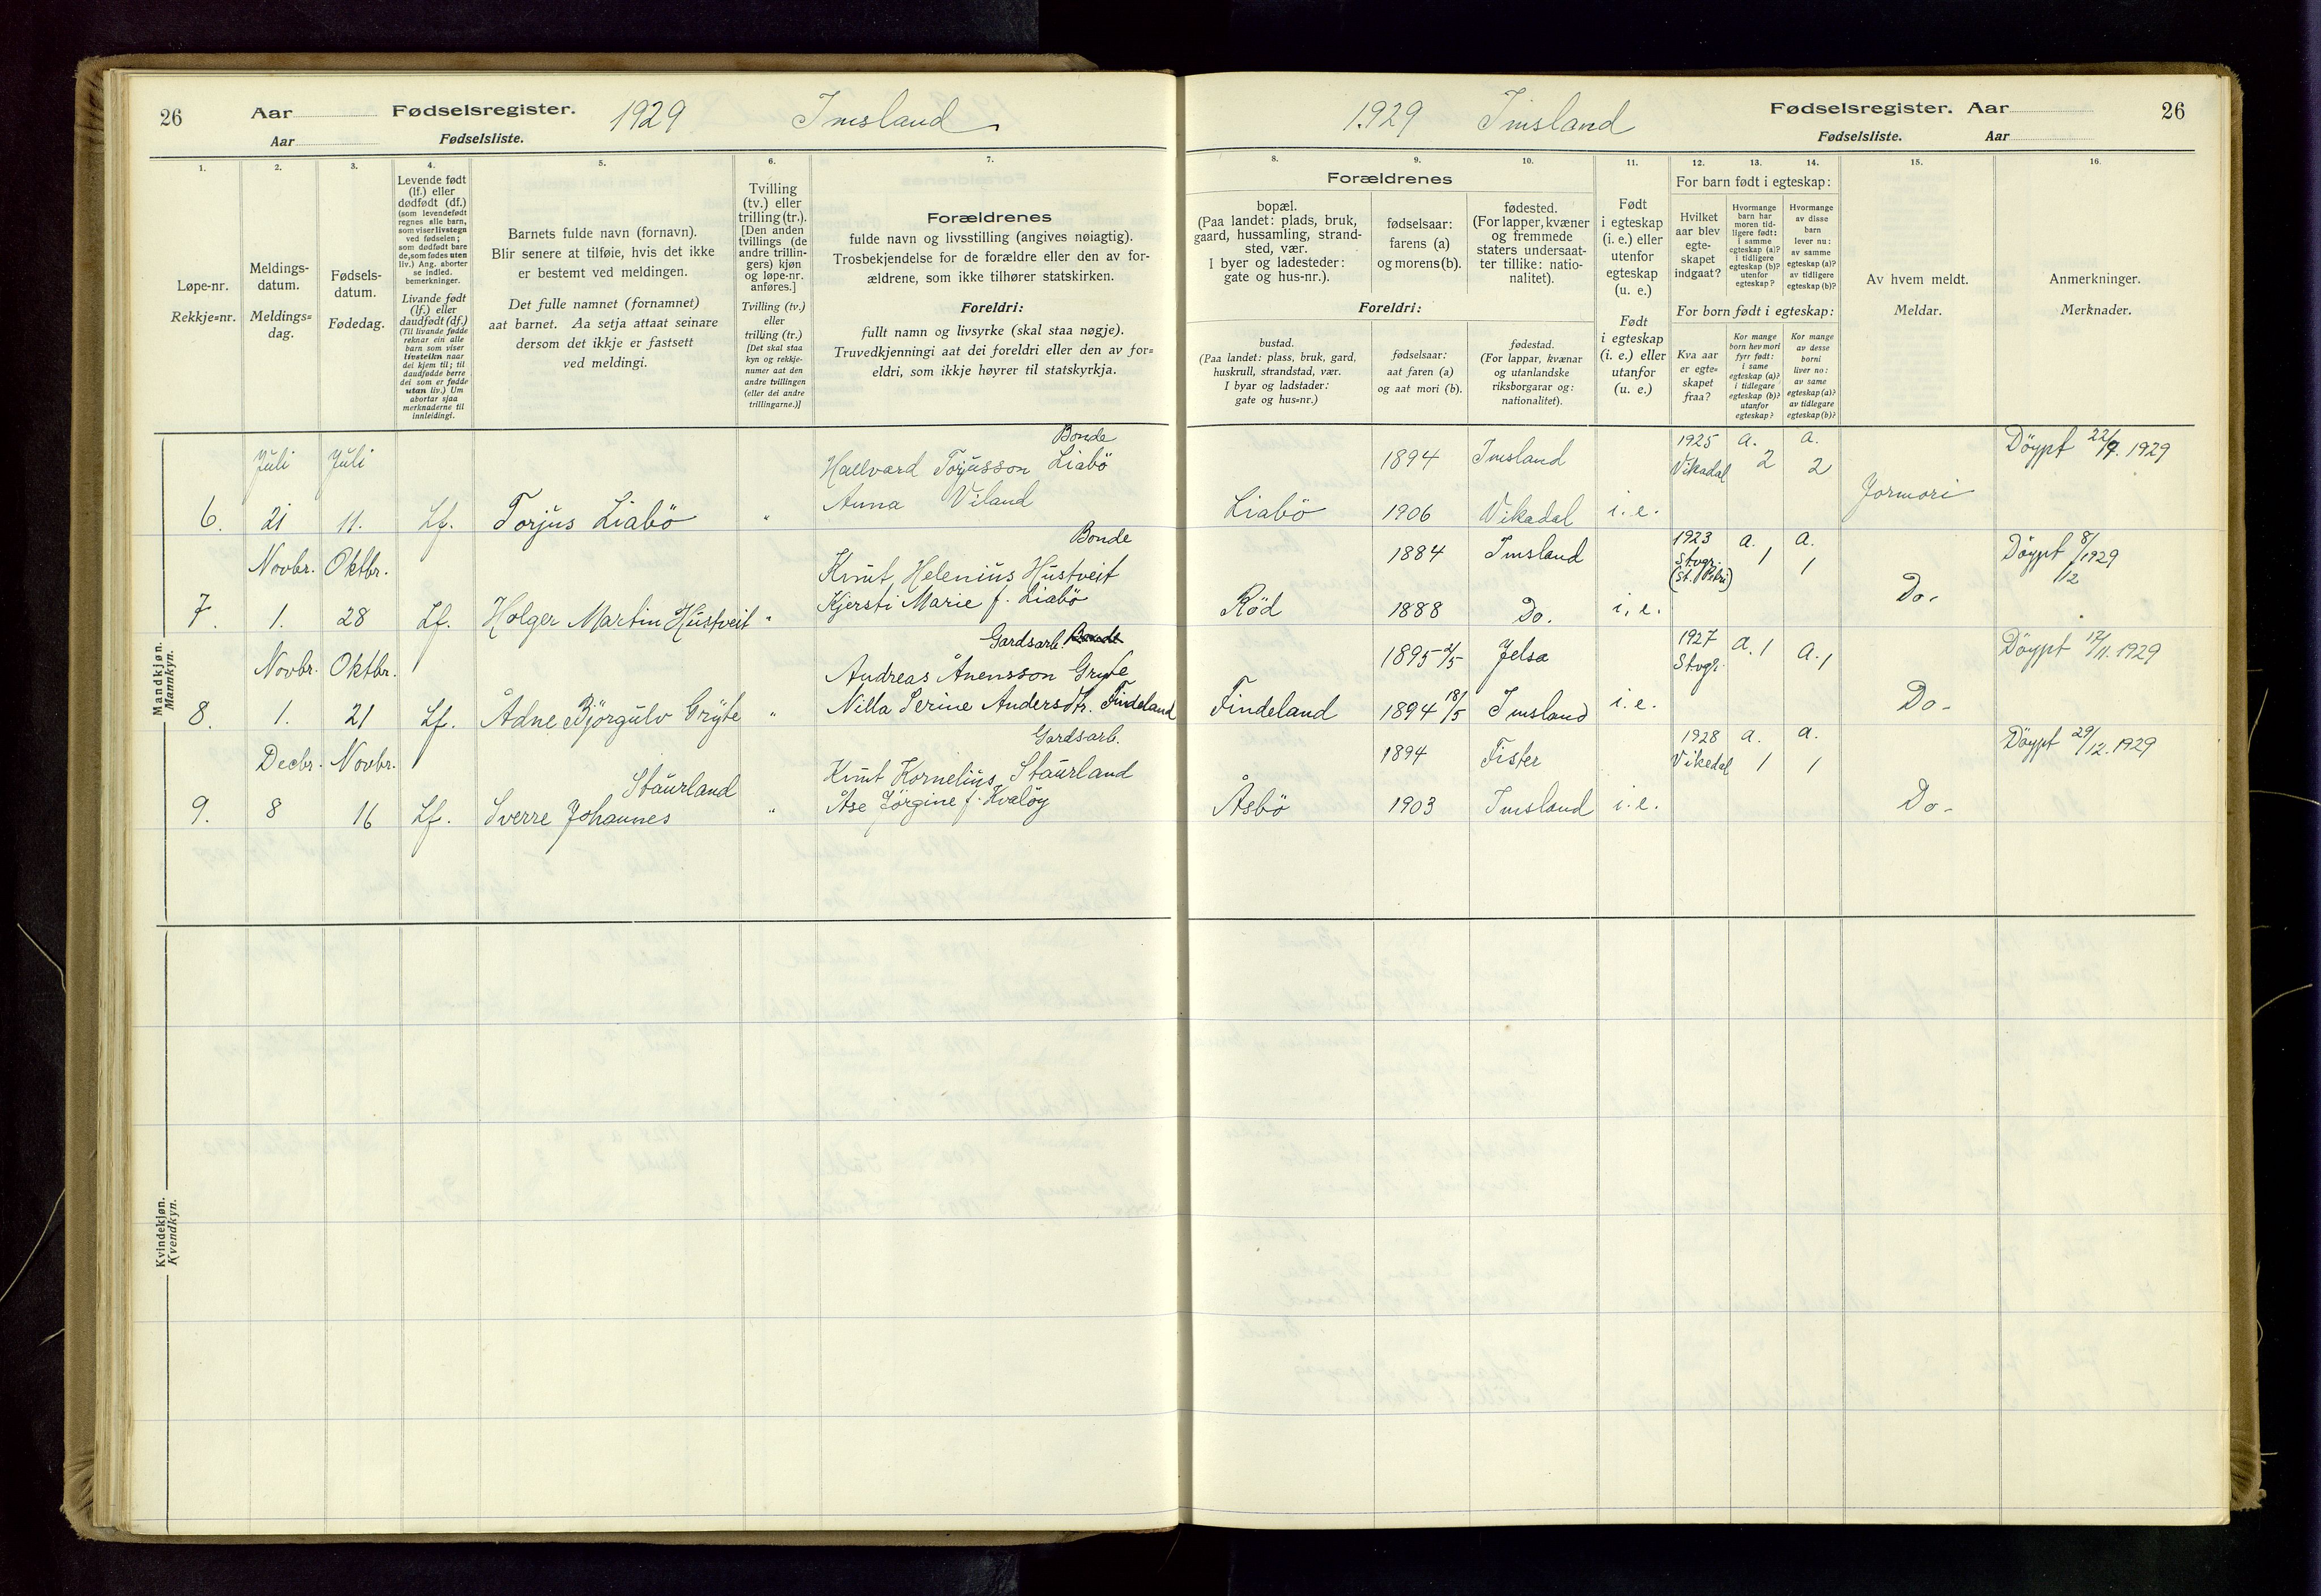 26
Aar
Fødselsregister.
1929
Imsland
Aar
Fødselsliste.
1.
2.
3.
4.
5.
6.
7.
Løpe-nr.
Rekkje=nr.
Meldings-
datum.
Meldings=
dag.
Fødsels-
datum.
Fødedag.
Levende født
(lf.) eller
dødfødt (df.)
(som levendefødt
regnes alle barn,
som viser livstegn
ved fødselen;
som dødfødt bare
de, som fødes uten
liv.) Ang. aborter
se indled.
bemerkninger.
Livande født
(lf.) eller
daudfødt (df.)
(Til livande fødde
reknar ein alle
barn som viser
livsteikn naar
dei kjem til; til
daudfødde berre
dei som er fødde
utan liv.) Um
abortar sjaa
merknaderne til
innleidingi.
Barnets fulde navn (fornavn).
Blir senere at tilføie, hvis det ikke
er bestemt ved meldingen.
Det fulle namnet (fornamnet)
aat barnet. Aa setja attaat seinare
dersom det ikkje er fastsett
ved meldingi.
Tvilling
(tv.) eller
trilling (tr.).
[Den anden
tvillings (de
andre trillin-
gers) kjøn
og løpe-nr.
anføres.]
Tvilling (tv.)
eller
trilling (tr.)
[Det skal staa
kyn og rekkje-
numer aat den
andre tvillingen
(eller dei andre
trillingarne.)]
Forældrenes
fulde navn og livsstilling (angives nøiagtig).
Trosbekjendelse for de forældre eller den av for-
ældrene, som ikke tilhører statskirken.
Foreldri:
fullt namn og livsyrke (skal staa nøgje).
Truvedkjenningi aat dei foreldri eller den av for=
eldri, som ikkje høyrer til statskyrkja.
Mandkjøn.
Mannkyn.
Bonde
Juli Juli Hallvard Torjusson Liabö
6. 21 11. Lf. Torjus Liabö " Anna Viland
Bonde
Novbr. Oktbr. Knut Helenius Hustveit
7. 1. 28 Lf. Holger Martin Hustveit " Kjersti Marie f. Liabö
Gardsarb. Bonde
Novbr. Oktbr. Andreas Ånensson Gryte
8. 1. 21 Lf. Ådne Bjørgulv Gryte " Nilla Serine Andersdtr. Findeland
Gardsarb.
Decbr. Novbr. Staurland Knut Kornelius Staurland
9. 8 16 Lf. Sverre Johannes " Åse Jörgine f. Kvaløy
Kvindekjøn.
Kvendkyn.
1929 Imsland
Fødselsregister. Aar
26
Fødselsliste. Aar
8.
9.
10.
11.
12.
13.
14.
15.
16.
Forældrenes
bopæl.
(Paa landet: plads, bruk,
gaard, hussamling, strand-
sted, vær.
I byer og ladesteder:
gate og hus-nr.).
fødselsaar:
farens (a)
og morens (b).
fødested.
(For lapper, kvæner
og fremmede
staters undersaat-
ter tillike: natio-
nalitet).
Foreldri:
bustad.
(Paa landet: plass, bruk, gard,
huskrull, strandstad, vær.
I byar og ladstader:
gate og hus=nr.)
fødselsaar:
aat faren (a)
og aat mori (b).
fødestad.
(For lappar, kvænar
og utanlandske
riksborgarar og:
nationalitet).
Født
i egteskap
(i. e.) eller
utenfor
egteskap
(u. e.)
Født
i egteskap
(i. e.) eller
utanfor
(u. e.)
For barn født i egteskap:
Hvilket
aar blev
egte-
skapet
indgaat?
Hvormange
barn har
moren tid-
ligere født:
i samme
egteskap (a)?
i tidligere
egteskap (b)?
utenfor
egteskap?
Hvormange
av disse
barn
lever nu:
av samme
egteskap (a)?
av tidligere
egteskap (b)?
For born født i egteskap:
Kva aar
er egte=
skapet
fraa?
Kor mange
born hev mori
fyrr født:
i same
egteskap (a)?
i tidlegare
egteskap (b)?
utanfor
egteskap?
Kor mange
av desse
borni
liver no:
av same
egteskap (a)?
av tidlegare
egteskap (b)?
Av hvem meldt.
Meldar.
Anmerkninger.
Merknader.
1894 Imsland 1925 a. a. Döypt 22/9. 1929
Vikadal 2 2
Liabö 1906 Vikadal i. e. Jormori
1884 Imsland 1923 a. a. Döypt 8/12 1929
Stvgr. 1 1
(St. Petri)
Röd 1888 Do. i. e. Do.
1895 2/5 Jelsa 1927 a. 1 a. 1 Döypt 17/11. 1929
Stvgr.
Findeland 1894 18/5 Imsland i. e. Do.
1894 Fister 1928 a. a. Döypt 29/12. 1929
Vikedal 1 1
Åsbö 1903 Imsland i. e. Do.